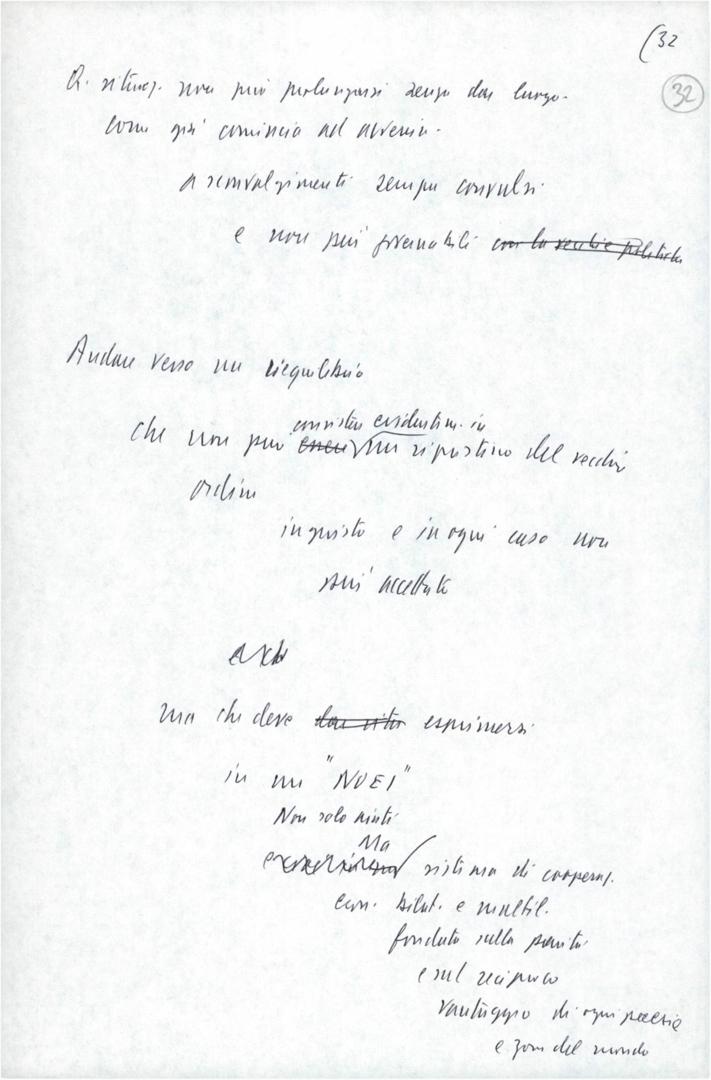 (32
32
Q. situaz. non può prolungarsi senza dar luogo.
come già comincia ad avvenire.
a sconvolgimenti sempre convulsi
e non più governabili con la vecchia politica
Andare verso un riequilibrio
consistere evidentem. in
che non può essere un ripristino del vecchio
ordine
ingiusto e in ogni caso non
più accettato
ma che deve esprimersi
in un "NOEI"
Non solo aiuti
Ma
sistema di cooperaz.
econ. bilat. e multil.
fondato sulla parità
e sul reciproco
vantaggio di ogni paese
e zona del mondo